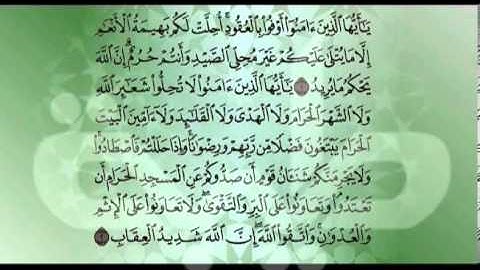 يَٰٓأَيُّهَا ٱلَّذِينَ ءَامَنُوٓا۟ أَوْفُوا۟ بِٱلْعُقُودِ أُحِلَّتْ لَكُم بَهِيمَةُ ٱلْأَنْعَٰمِ
إِلَّا مَا يُتْلَىٰ عَلَيْكُمْ غَيْرَ مُحِلِّى ٱلصَّيْدِ وَأَنتُمْ حُرُمٌ إِنَّ ٱللَّهَ
يَحْكُمُ مَا يُرِيدُ ١ يَٰٓأَيُّهَا ٱلَّذِينَ ءَامَنُوا۟ لَا تُحِلُّوا۟ شَعَٰٓئِرَ ٱللَّهِ
وَلَا ٱلشَّهْرَ ٱلْحَرَامَ وَلَا ٱلْهَدْىَ وَلَا ٱلْقَلَٰٓئِدَ وَلَآ ءَآمِّينَ ٱلْبَيْتَ
ٱلْحَرَامَ يَبْتَغُونَ فَضْلًا مِّن رَّبِّهِمْ وَرِضْوَٰنًا وَإِذَا حَلَلْتُمْ فَٱصْطَادُوا۟
وَلَا يَجْرِمَنَّكُمْ شَنَـَٔانُ قَوْمٍ أَن صَدُّوكُمْ عَنِ ٱلْمَسْجِدِ ٱلْحَرَامِ أَن
تَعْتَدُوا۟ وَتَعَاوَنُوا۟ عَلَى ٱلْبِرِّ وَٱلتَّقْوَىٰ وَلَا تَعَاوَنُوا۟ عَلَى ٱلْإِثْمِ
وَٱلْعُدْوَٰنِ وَٱتَّقُوا۟ ٱللَّهَ إِنَّ ٱللَّهَ شَدِيدُ ٱلْعِقَابِ ٢